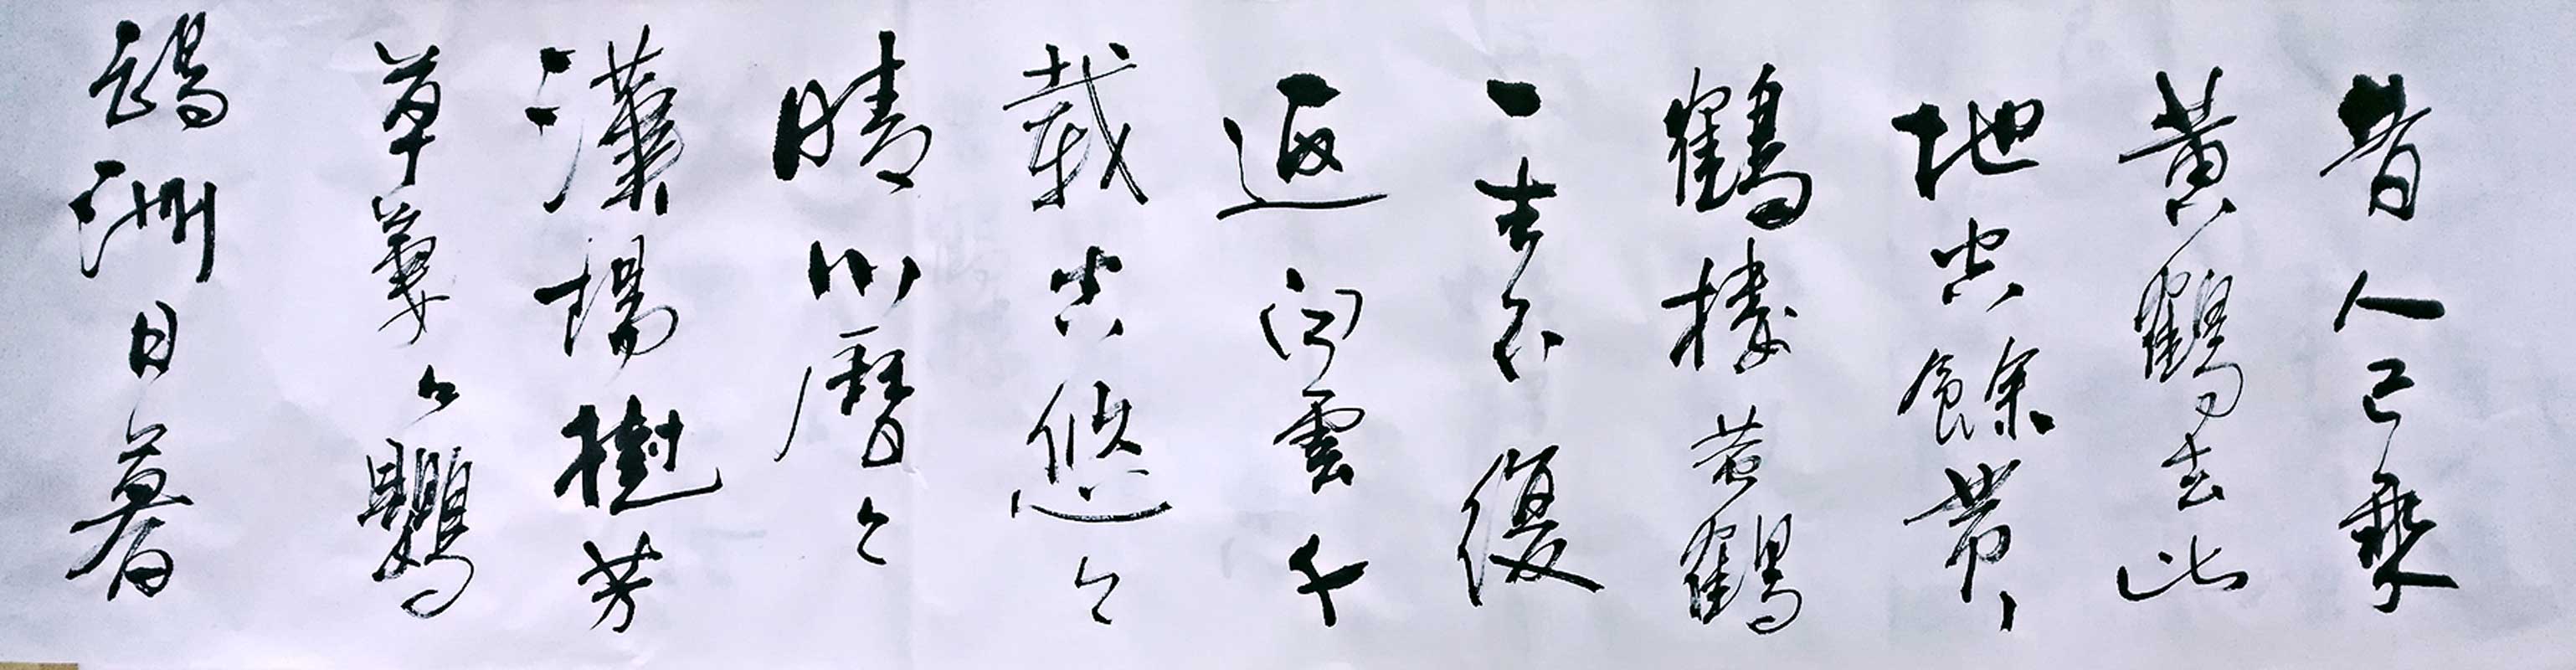 昔人已乘
黄鶴去此
地空餘黄
鶴樓黄鶴
一去不復
返白雲千
載空悠々
晴川曆々
漢陽樹芳
草萋々鸚
鵡洲日暮